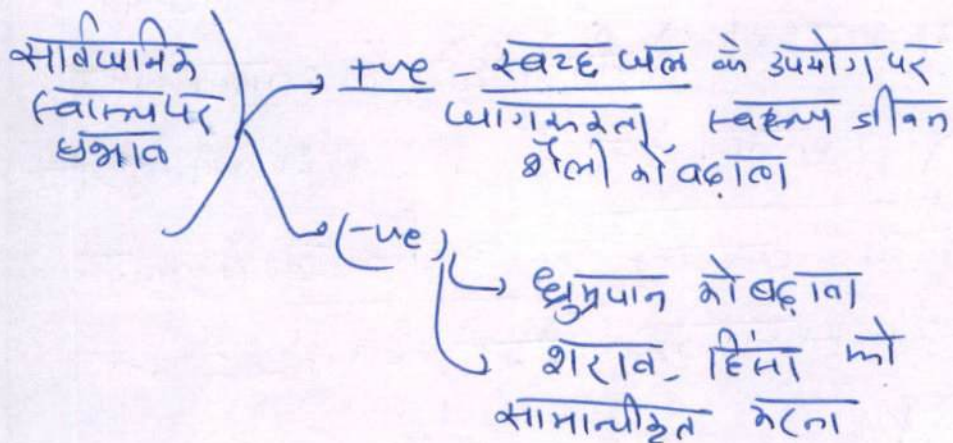 सार्वजनिक
स्वास्थ्य पर
प्रभाव
+ve - स्वच्छ जल के उपयोग पर
जागरूकता, स्वस्थ जीवन
शैली को बढ़ावा
(-ve)
धुम्रपान को बढ़ावा
शराब, हिंसा को
सामान्यीकृत करना